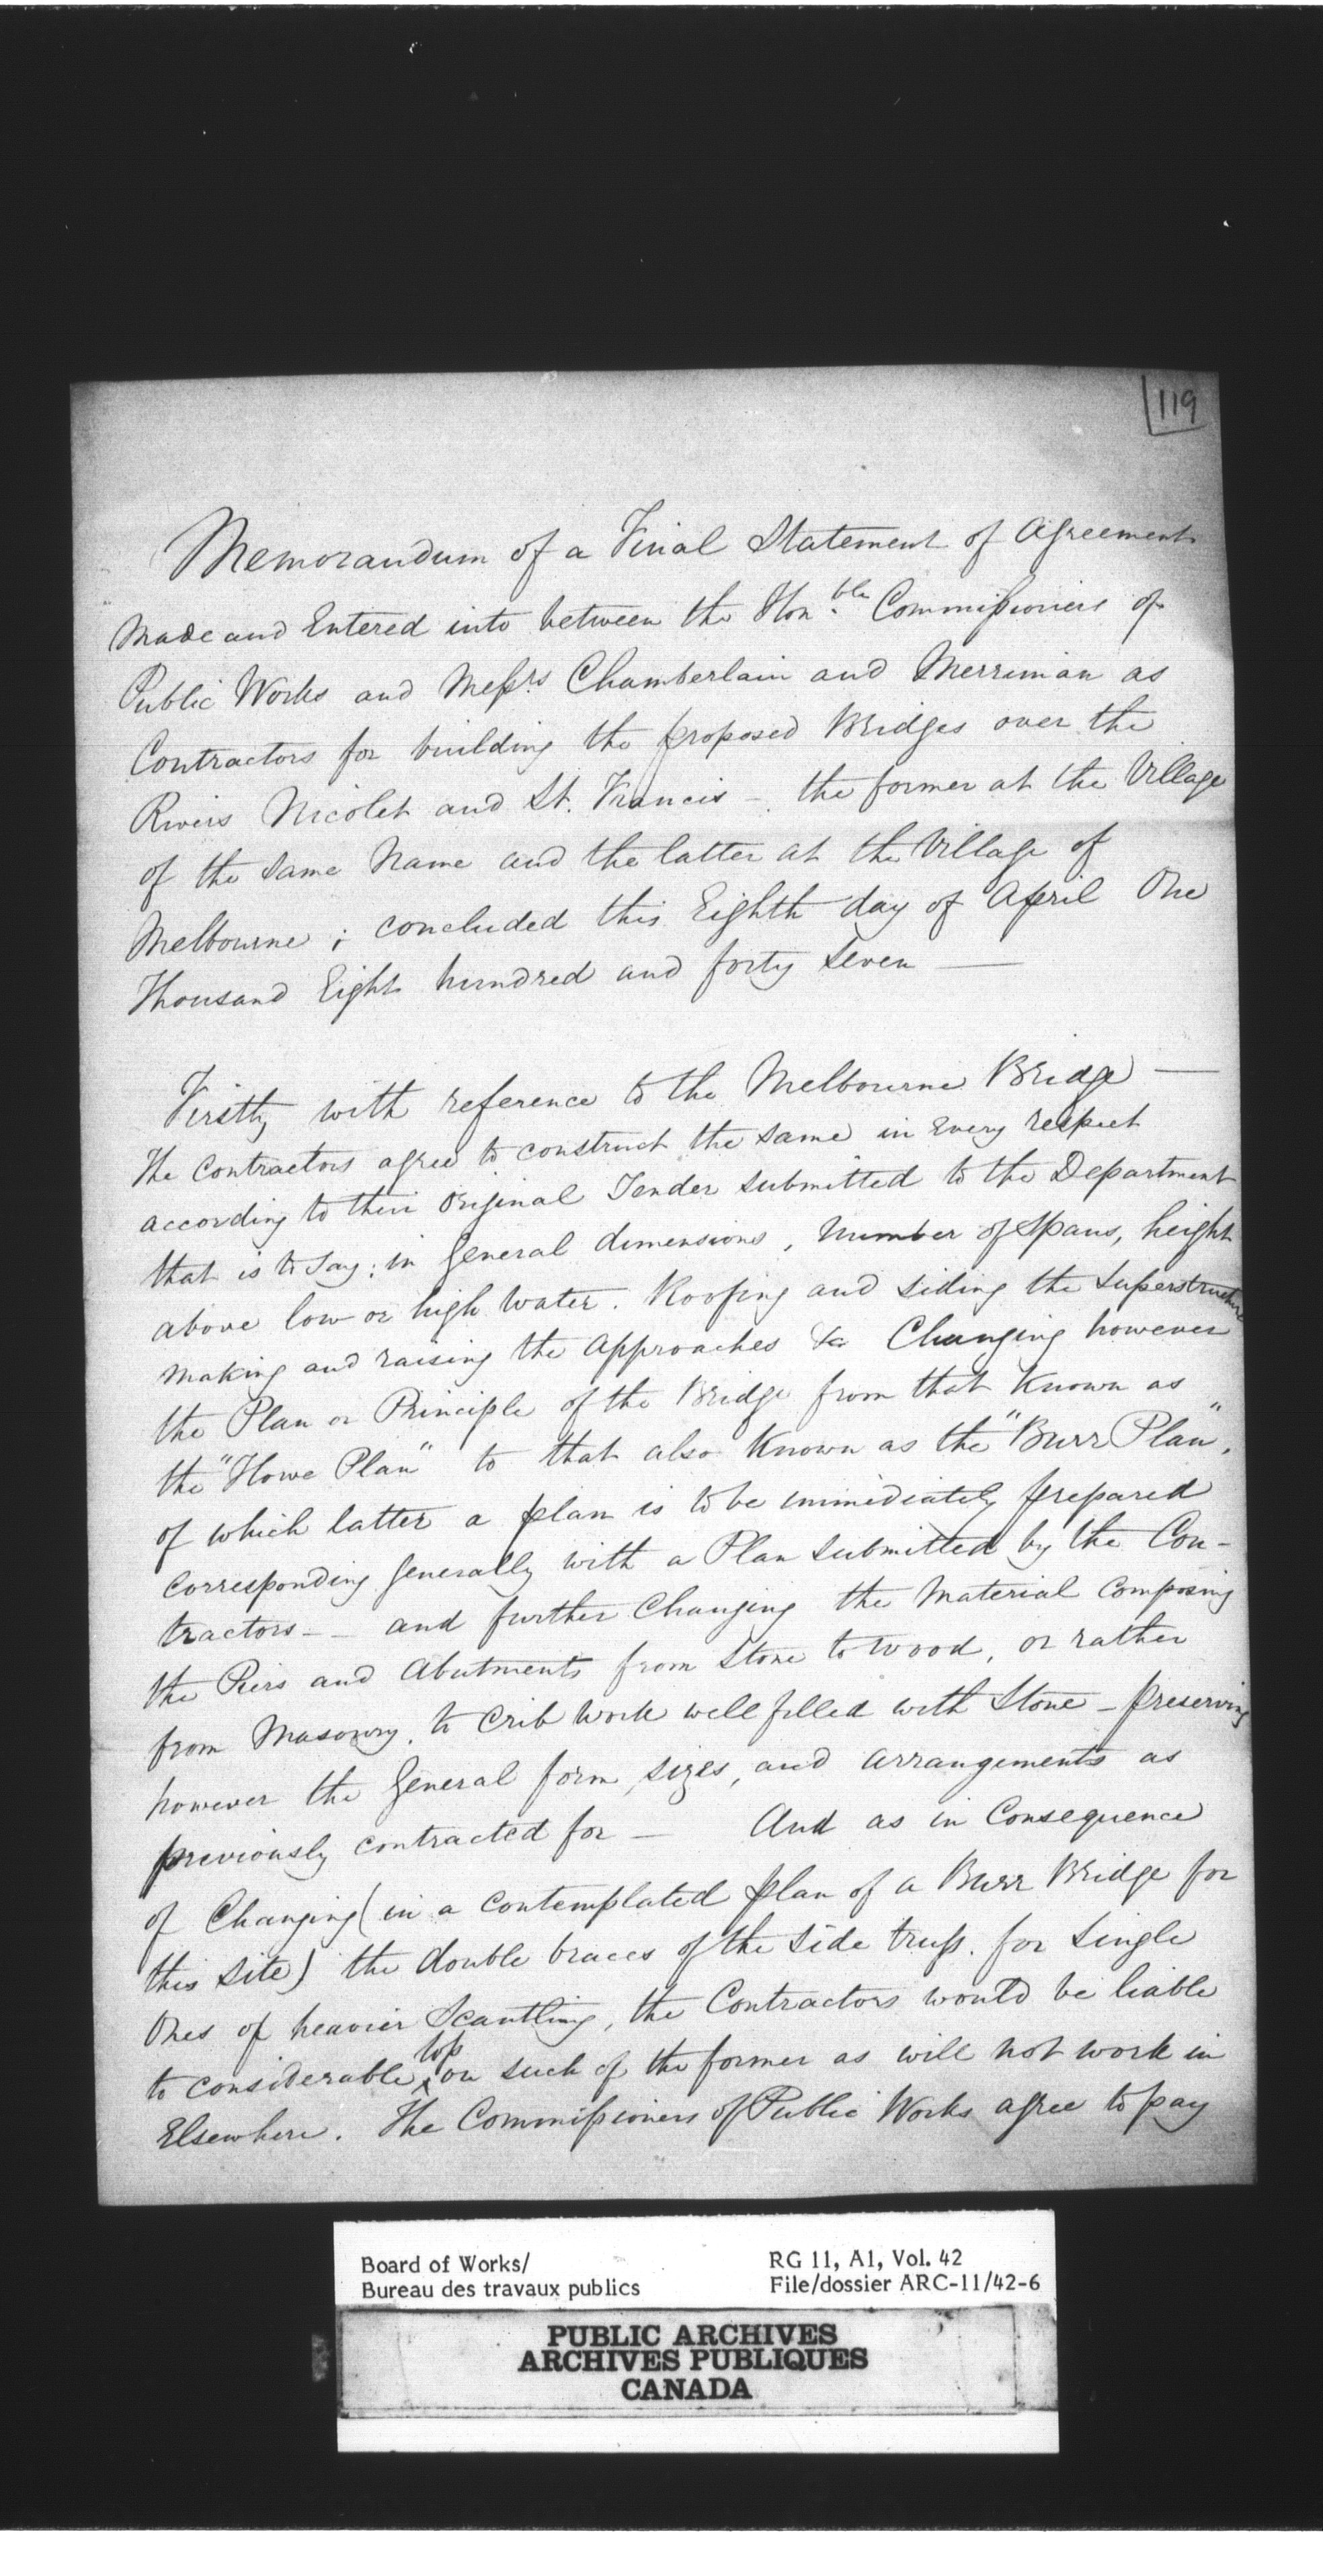 119
Memorandum of a Final Statement of Agreement
Made and Entered into between the Honble Commissioners of
Public Works and Messrs Chamberlain and Merriman as
Contractors for building the proposed Bridges over the
Rivers Nicolet and St. Francis - the former at the Village
of the same Name and the latter at the Village of
Melbourne ; concluded this Eighth day of April One
Thousand Eight hundred and forty Seven —
Firstly with reference to the Melbourne Bridge —
The Contractors agree to construct the same in Every respect
according to their Original Tender submitted to the Department
that is to say: in General dimensions, Number of Spans, height
above low or high Water. Roofing and siding the Superstructure
Making and raising the Approaches &c Changing however
the Plan or Principle of the Bridge from that Known as
the "Howe Plan" to that also Known as the "Burr Plan",
of which latter a plan is to be immediately prepared
corresponding generally with a Plan submitted by the Con-
tractors - - and further Changing the Material Composing
the Piers and Abutments from Stone to Wood, or rather
from Masonry, to Crib Work well filled with Stone - preserving
however the General form, sizes, and arrangements as
previously contracted for — And as in Consequence
of Changing (in a contemplated plan of a Burr Bridge for
this Site) the double braces of the Side truss. for Single
Ones of heavier Scantling, the Contractors would be liable
to considerable loss on such of the former as will not work in
Elsewhere. The Commissioners of Public Works agree to pay
Board of Works/
Bureau des travaux publics
RG 11, A1, Vol. 42
File/dossier ARC-11/42-6
PUBLIC ARCHIVES
ARCHIVES PUBLIQUES
CANADA